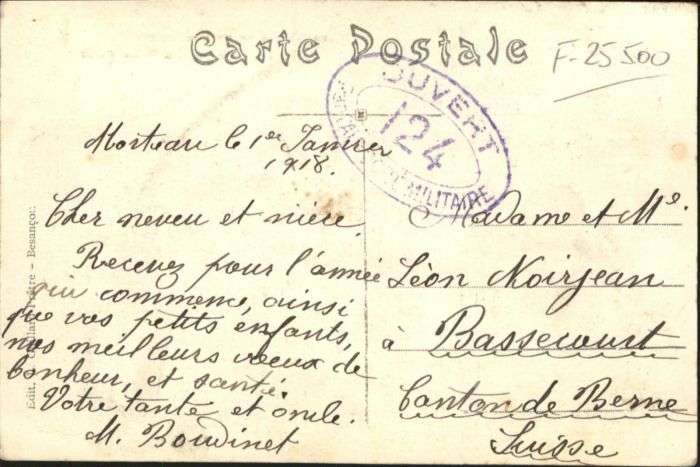 Carte Postale
F-25 500
OUVERT
124
PAR AUTORITÉ MILITAIRE
Morteau le 1er Janvier
1918.
Cher neveu et nièce.
Recevez pour l'année
qui commence, ainsi
que vos petits enfants,
nos meilleurs vœux de
bonheur, et santé.
Votre tante et oncle.
M. Boudinet
Madame et Mr.
Léon Noirjean
à Bassecourt
Canton de Berne
Suisse
Edit. - Besançon